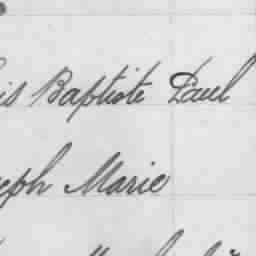 is Baptiste Paul
eph Marie